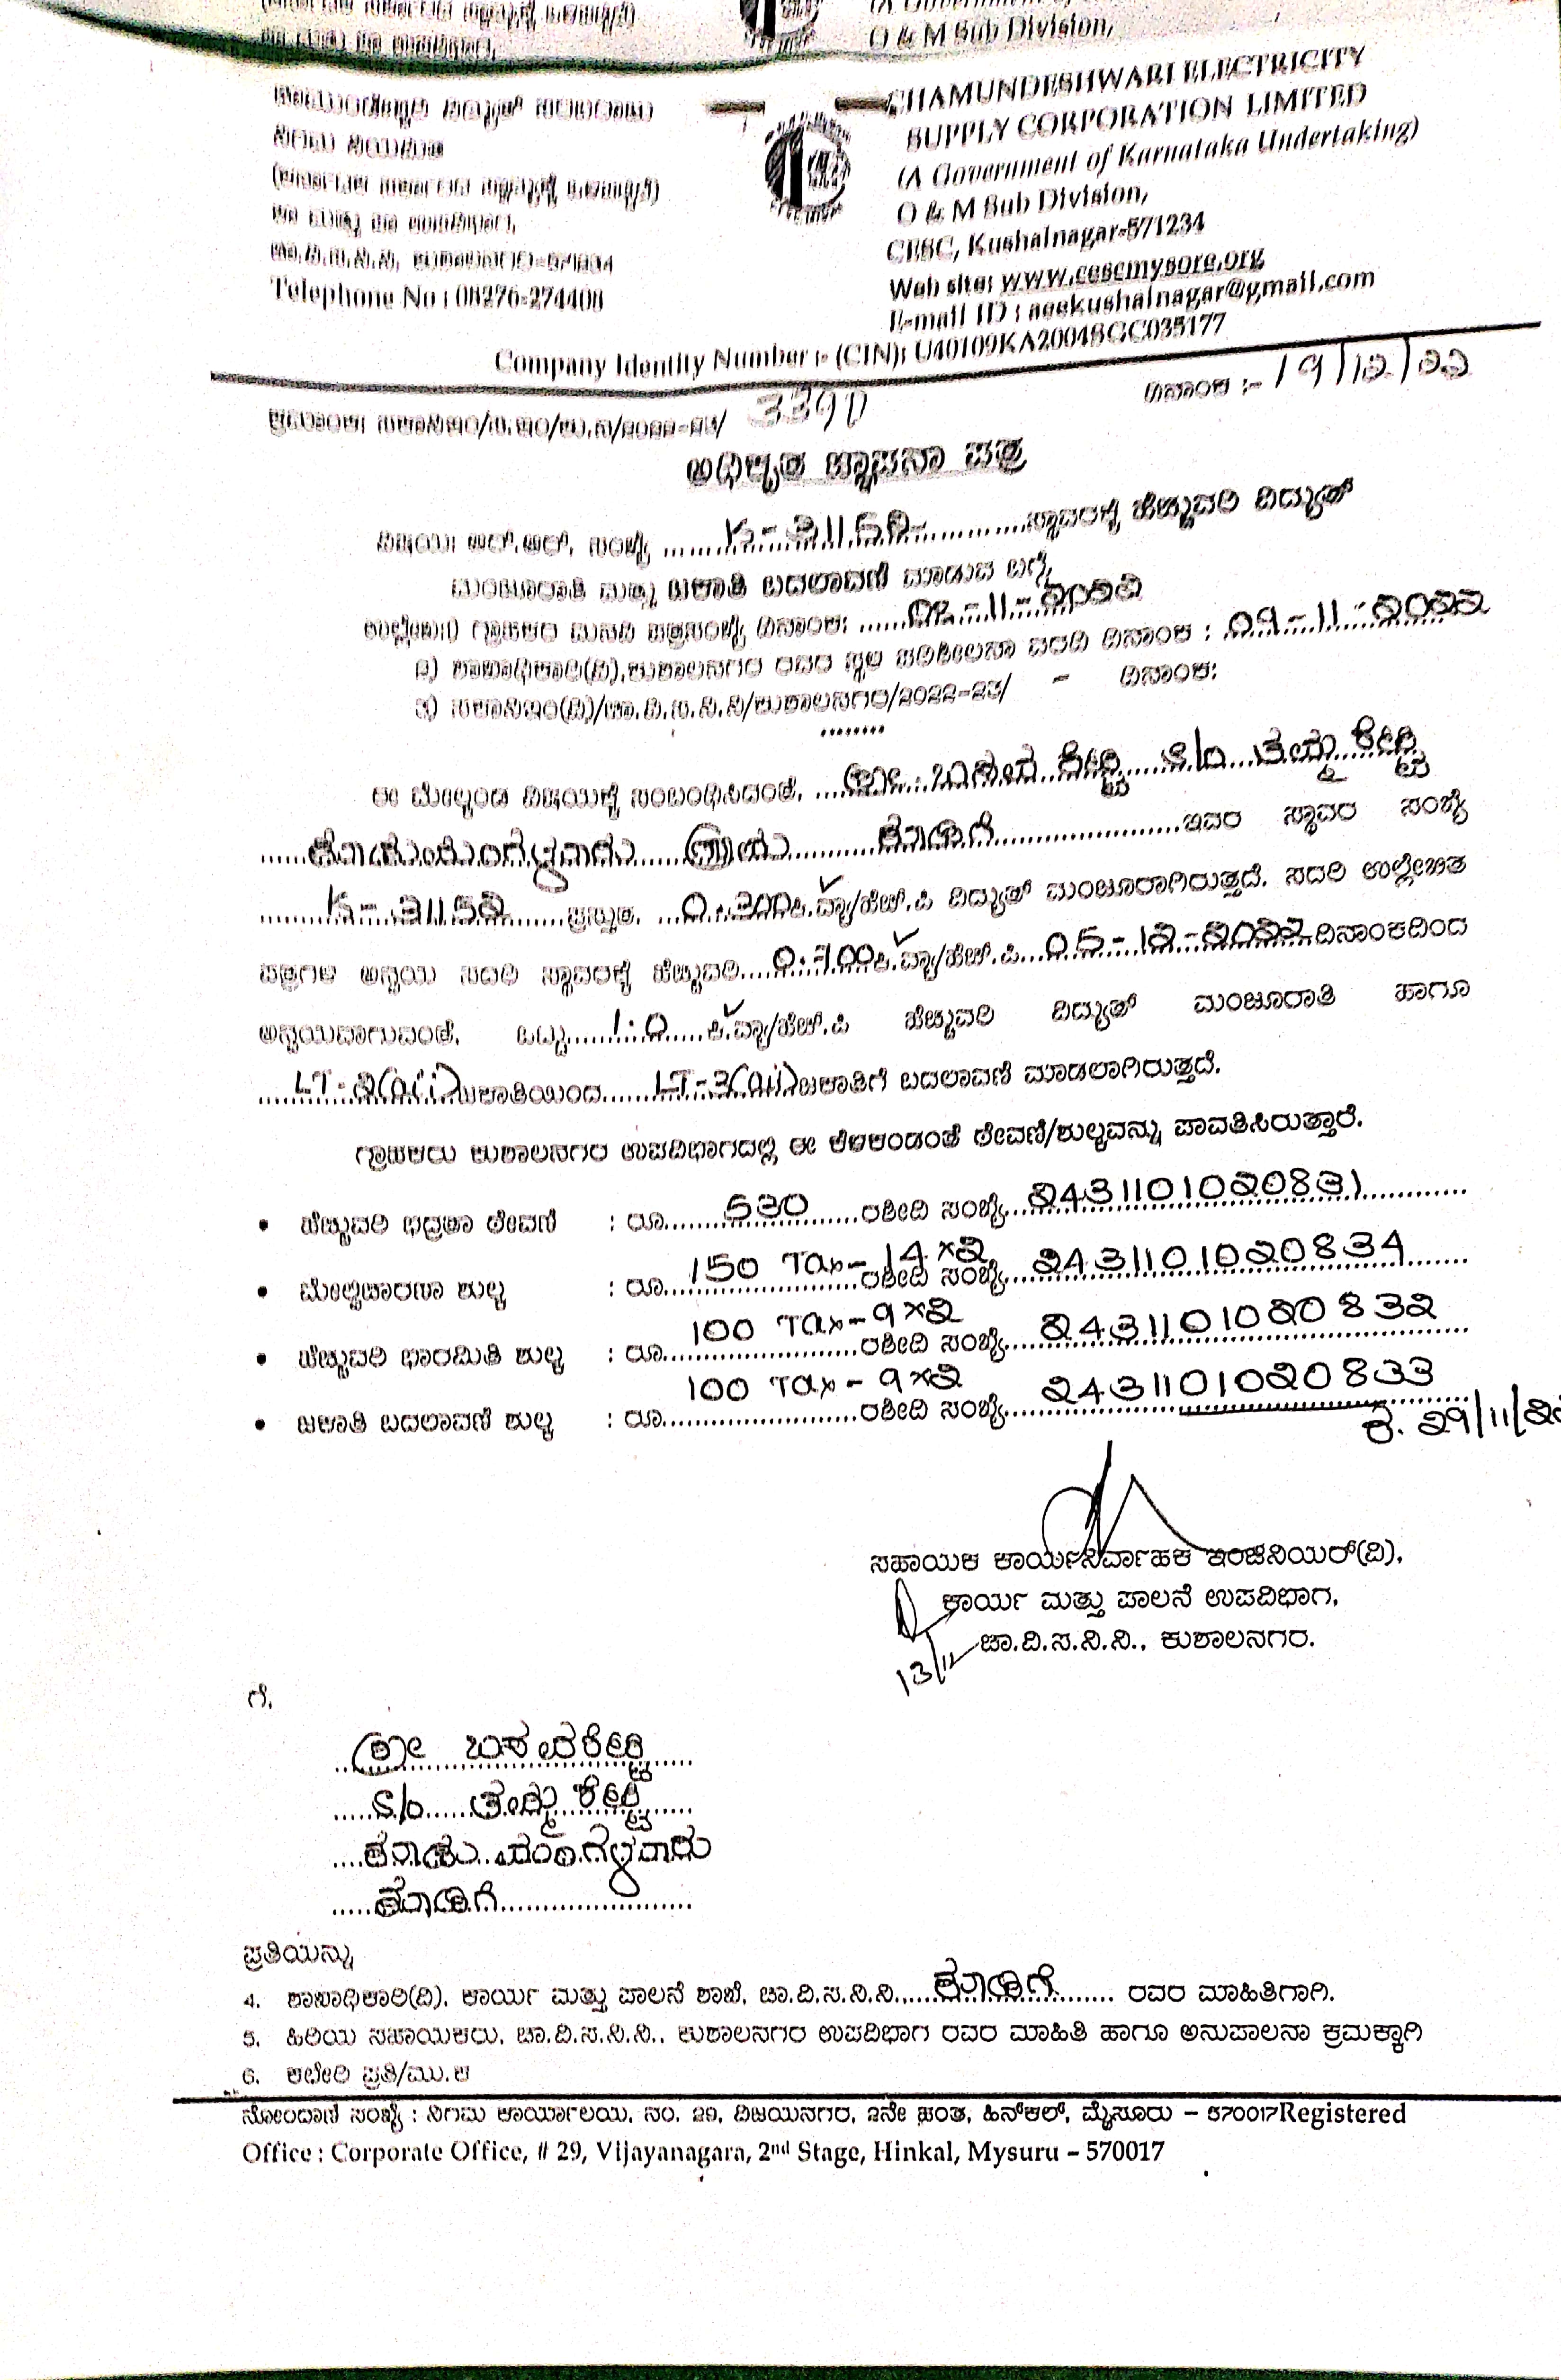 O & M Sub Division,
ಚಾಮುಂಡೇಶ್ವರಿ ವಿದ್ಯುತ್ ಸರಬರಾಜು
ನಿಗಮ ನಿಯಮಿತ
(ಕರ್ನಾಟಕ ಸರ್ಕಾರದ ಸ್ವಾಮ್ಯಕ್ಕೆ ಒಳಪಟ್ಟಿದೆ)
Telephone No : 08276-274408
CHAMUNDESHWARI ELECTRICITY
SUPPLY CORPORATION LIMITED
(A Government of Karnataka Undertaking)
O & M Sub Division,
CESC, Kushalnagar-571234
Web site: www.cescmysore.org
E-mail ID : aeekushalnagar@gmail.com
Company Identity Number :- (CIN): U40109KA2004SGC035177
ದಿನಾಂಕ :- 19/12/22
3390
ಅಧಿಕೃತ ಜ್ಞಾಪನಾ ಪತ್ರ
ವಿಷಯ: ಆರ್.ಆರ್. ಸಂಖ್ಯೆ ......K-31152......ಸ್ಥಾವರಕ್ಕೆ ಹೆಚ್ಚುವರಿ ವಿದ್ಯುತ್
ಮಂಜೂರಾತಿ ಮತ್ತು ಜಕಾತಿ ಬದಲಾವಣೆ ಮಾಡುವ ಬಗ್ಗೆ
ಉಲ್ಲೇಖ:1) ಗ್ರಾಹಕರ ಮನವಿ ಪತ್ರಸಂಖ್ಯೆ ದಿನಾಂಕ: ......-11-2022
೨) ಶಾಖಾಧಿಕಾರಿ(ವಿ),ಕುಶಾಲನಗರ ರವರ ಸ್ಥಳ ಪರಿಶೀಲನಾ ವರದಿ ದಿನಾಂಕ : 09-11-2022
೩) ಸಕಾನಿಇಂ(ವಿ)/ಚಾ.ವಿ.ಸ.ನಿ.ನಿ/ಕುಶಾಲನಗರ/2022-23/ - ದಿನಾಂಕ:
........
ಈ ಮೇಲ್ಕಂಡ ವಿಷಯಕ್ಕೆ ಸಂಬಂಧಿಸಿದಂತೆ, ......ಶ್ರೀ. ಬಸವ ಶೆಟ್ಟಿ S/o ತಮ್ಮ ಶೆಟ್ಟಿ
...... ಕೂಡಿಗೆ......ಇವರ ಸ್ಥಾವರ ಸಂಖ್ಯೆ
......K-31152......ಪ್ರಸ್ತುತ. ...0.300ಕಿ.ವ್ಯಾ/ಹೆಚ್.ಪಿ ವಿದ್ಯುತ್ ಮಂಜೂರಾಗಿರುತ್ತದೆ. ಸದರಿ ಉಲ್ಲೇಖಿತ
ಪತ್ರಗಳ ಅನ್ವಯ ಸದರಿ ಸ್ಥಾವರಕ್ಕೆ ಹೆಚ್ಚುವರಿ....0.700ಕಿ.ವ್ಯಾ/ಹೆಚ್.ಪಿ...05-12-2022ದಿನಾಂಕದಿಂದ
ಅನ್ವಯವಾಗುವಂತೆ. ಒಟ್ಟು......1.0.....ಕಿ.ವ್ಯಾ/ಹೆಚ್.ಪಿ ಹೆಚ್ಚುವರಿ ವಿದ್ಯುತ್ ಮಂಜೂರಾತಿ ಹಾಗೂ
....LT-2(aii)ಜಕಾತಿಯಿಂದ......LT-3(aii)ಜಕಾತಿಗೆ ಬದಲಾವಣೆ ಮಾಡಲಾಗಿರುತ್ತದೆ.
ಗ್ರಾಹಕರು ಕುಶಾಲನಗರ ಉಪವಿಭಾಗದಲ್ಲಿ ಈ ಕೆಳಕಂಡಂತೆ ಠೇವಣಿ/ಶುಲ್ಕವನ್ನು ಪಾವತಿಸಿರುತ್ತಾರೆ.
• ಹೆಚ್ಚುವರಿ ಭದ್ರತಾ ಠೇವಣಿ : ರೂ.......530.......ರಶೀದಿ ಸಂಖ್ಯೆ...2431101020831............
• ಮೇಲ್ವಿಚಾರಣಾ ಶುಲ್ಕ : ರೂ...150 Tax-14×2...ರಶೀದಿ ಸಂಖ್ಯೆ...2431101020834......
• ಹೆಚ್ಚುವರಿ ಭಾರಮಿತಿ ಶುಲ್ಕ : ರೂ...100 Tax-9×2...ರಶೀದಿ ಸಂಖ್ಯೆ...2431101020832
• ಜಕಾತಿ ಬದಲಾವಣೆ ಶುಲ್ಕ : ರೂ...100 Tax-9×2...ರಶೀದಿ ಸಂಖ್ಯೆ...2431101020833
ದಿ. 29/11/22
ಸಹಾಯಕ ಕಾರ್ಯನಿರ್ವಾಹಕ ಇಂಜಿನಿಯರ್(ವಿ),
ಕಾರ್ಯ ಮತ್ತು ಪಾಲನೆ ಉಪವಿಭಾಗ,
ಚಾ.ವಿ.ಸ.ನಿ.ನಿ., ಕುಶಾಲನಗರ.
13/11
ಗೆ,
ಶ್ರೀ ಬಸವಶೆಟ್ಟಿ
S/o ತಮ್ಮ ಶೆಟ್ಟಿ
ಕೂಡಿಗೆ
ಪ್ರತಿಯನ್ನು
4. ಶಾಖಾಧಿಕಾರಿ(ವಿ). ಕಾರ್ಯ ಮತ್ತು ಪಾಲನೆ ಶಾಖೆ, ಚಾ.ವಿ.ಸ.ನಿ.ನಿ.....ಕೂಡಿಗೆ...... ರವರ ಮಾಹಿತಿಗಾಗಿ.
5. ಹಿರಿಯ ಸಹಾಯಕರು, ಚಾ.ವಿ.ಸ.ನಿ.ನಿ., ಕುಶಾಲನಗರ ಉಪವಿಭಾಗ ರವರ ಮಾಹಿತಿ ಹಾಗೂ ಅನುಪಾಲನಾ ಕ್ರಮಕ್ಕಾಗಿ
6. ಕಛೇರಿ ಪ್ರತಿ/ಮು.ಕ
ನೋಂದಾಣಿ ಸಂಖ್ಯೆ : ನಿಗಮ ಕಾರ್ಯಾಲಯ, ನಂ. 29, ವಿಜಯನಗರ, 2ನೇ ಹಂತ, ಹಿನ್‌ಕಲ್, ಮೈಸೂರು – 570017Registered
Office : Corporate Office, # 29, Vijayanagara, 2nd Stage, Hinkal, Mysuru – 570017